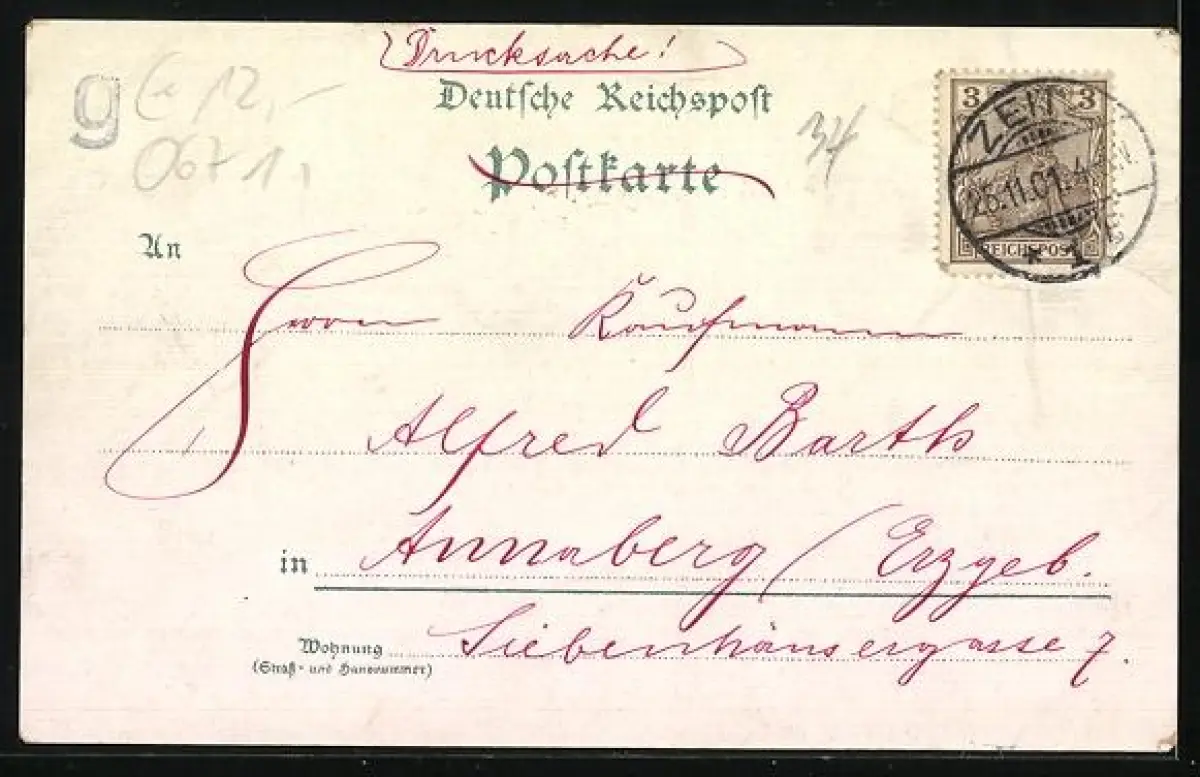 Drucksache!
Deutsche Reichspost
Postkarte
g
12,-
0671,
34
3 3
REICHSPOST
ZEIT
26.11.01. 4-5N.
* 1 c
An
Herrn Kaufmann
Alfred Barth
in Annaberg (Erzgeb.
Wohnung Siebenhäusergasse 7.
(Straß- und Hausnummer)